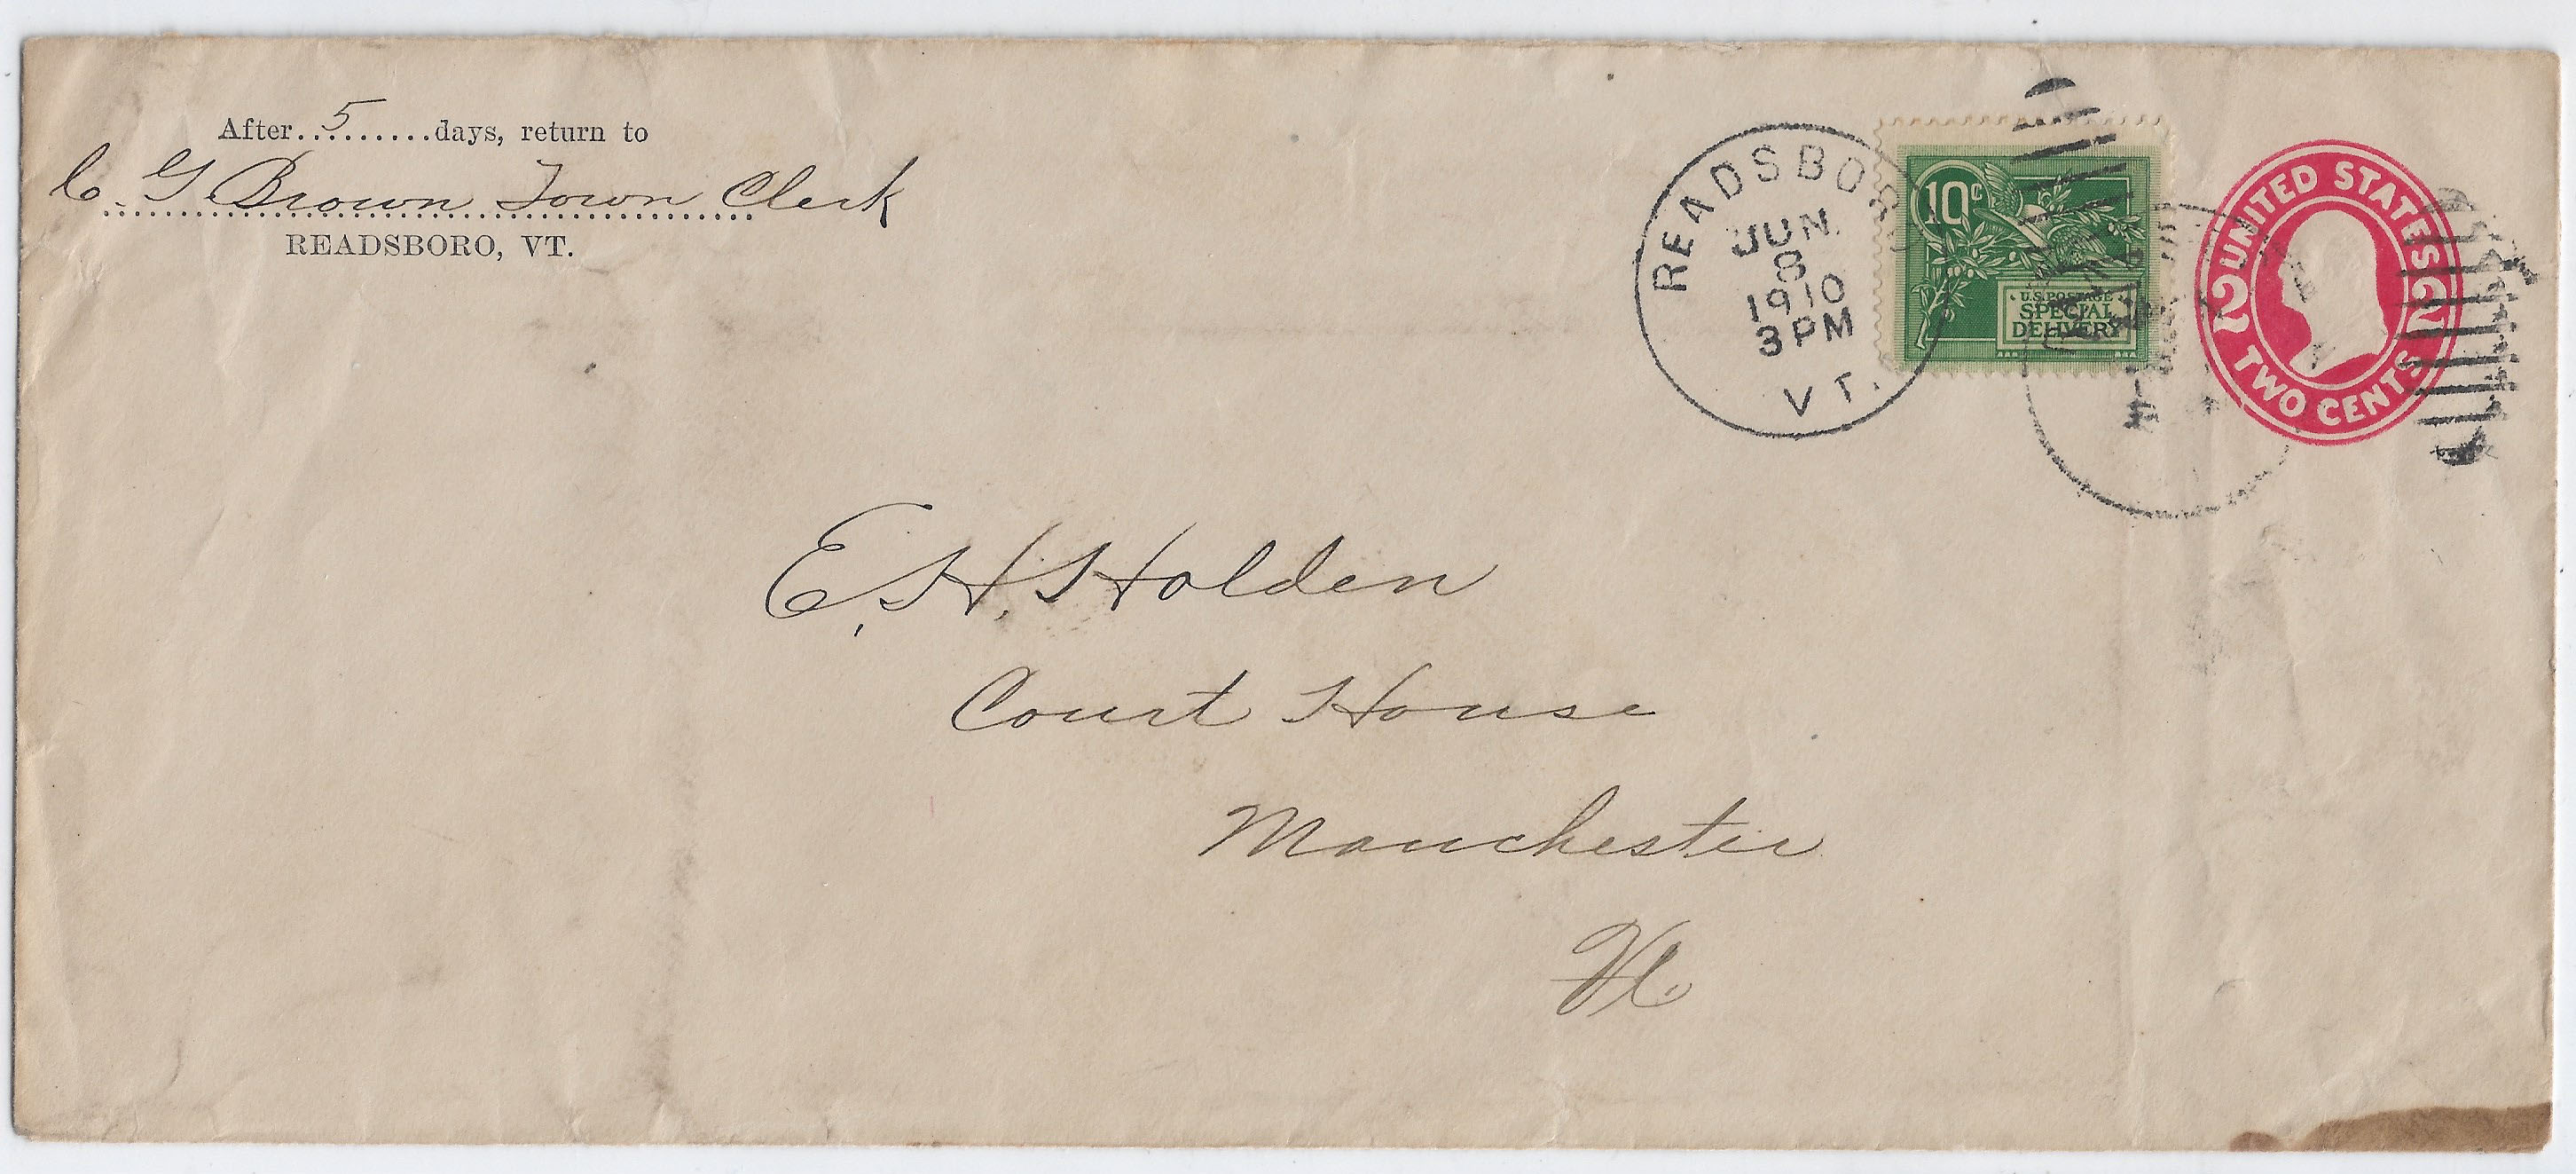 After..5.......days, return to
C. G. Brown Town Clerk
READSBORO, VT.
READSBORO
JUN.
8
1910
3 PM
VT.
10c
U.S. POSTAGE
SPECIAL
DELIVERY
UNITED STATES
2 2
TWO CENTS
E. H. Holden
Court House
Manchester
Vt.